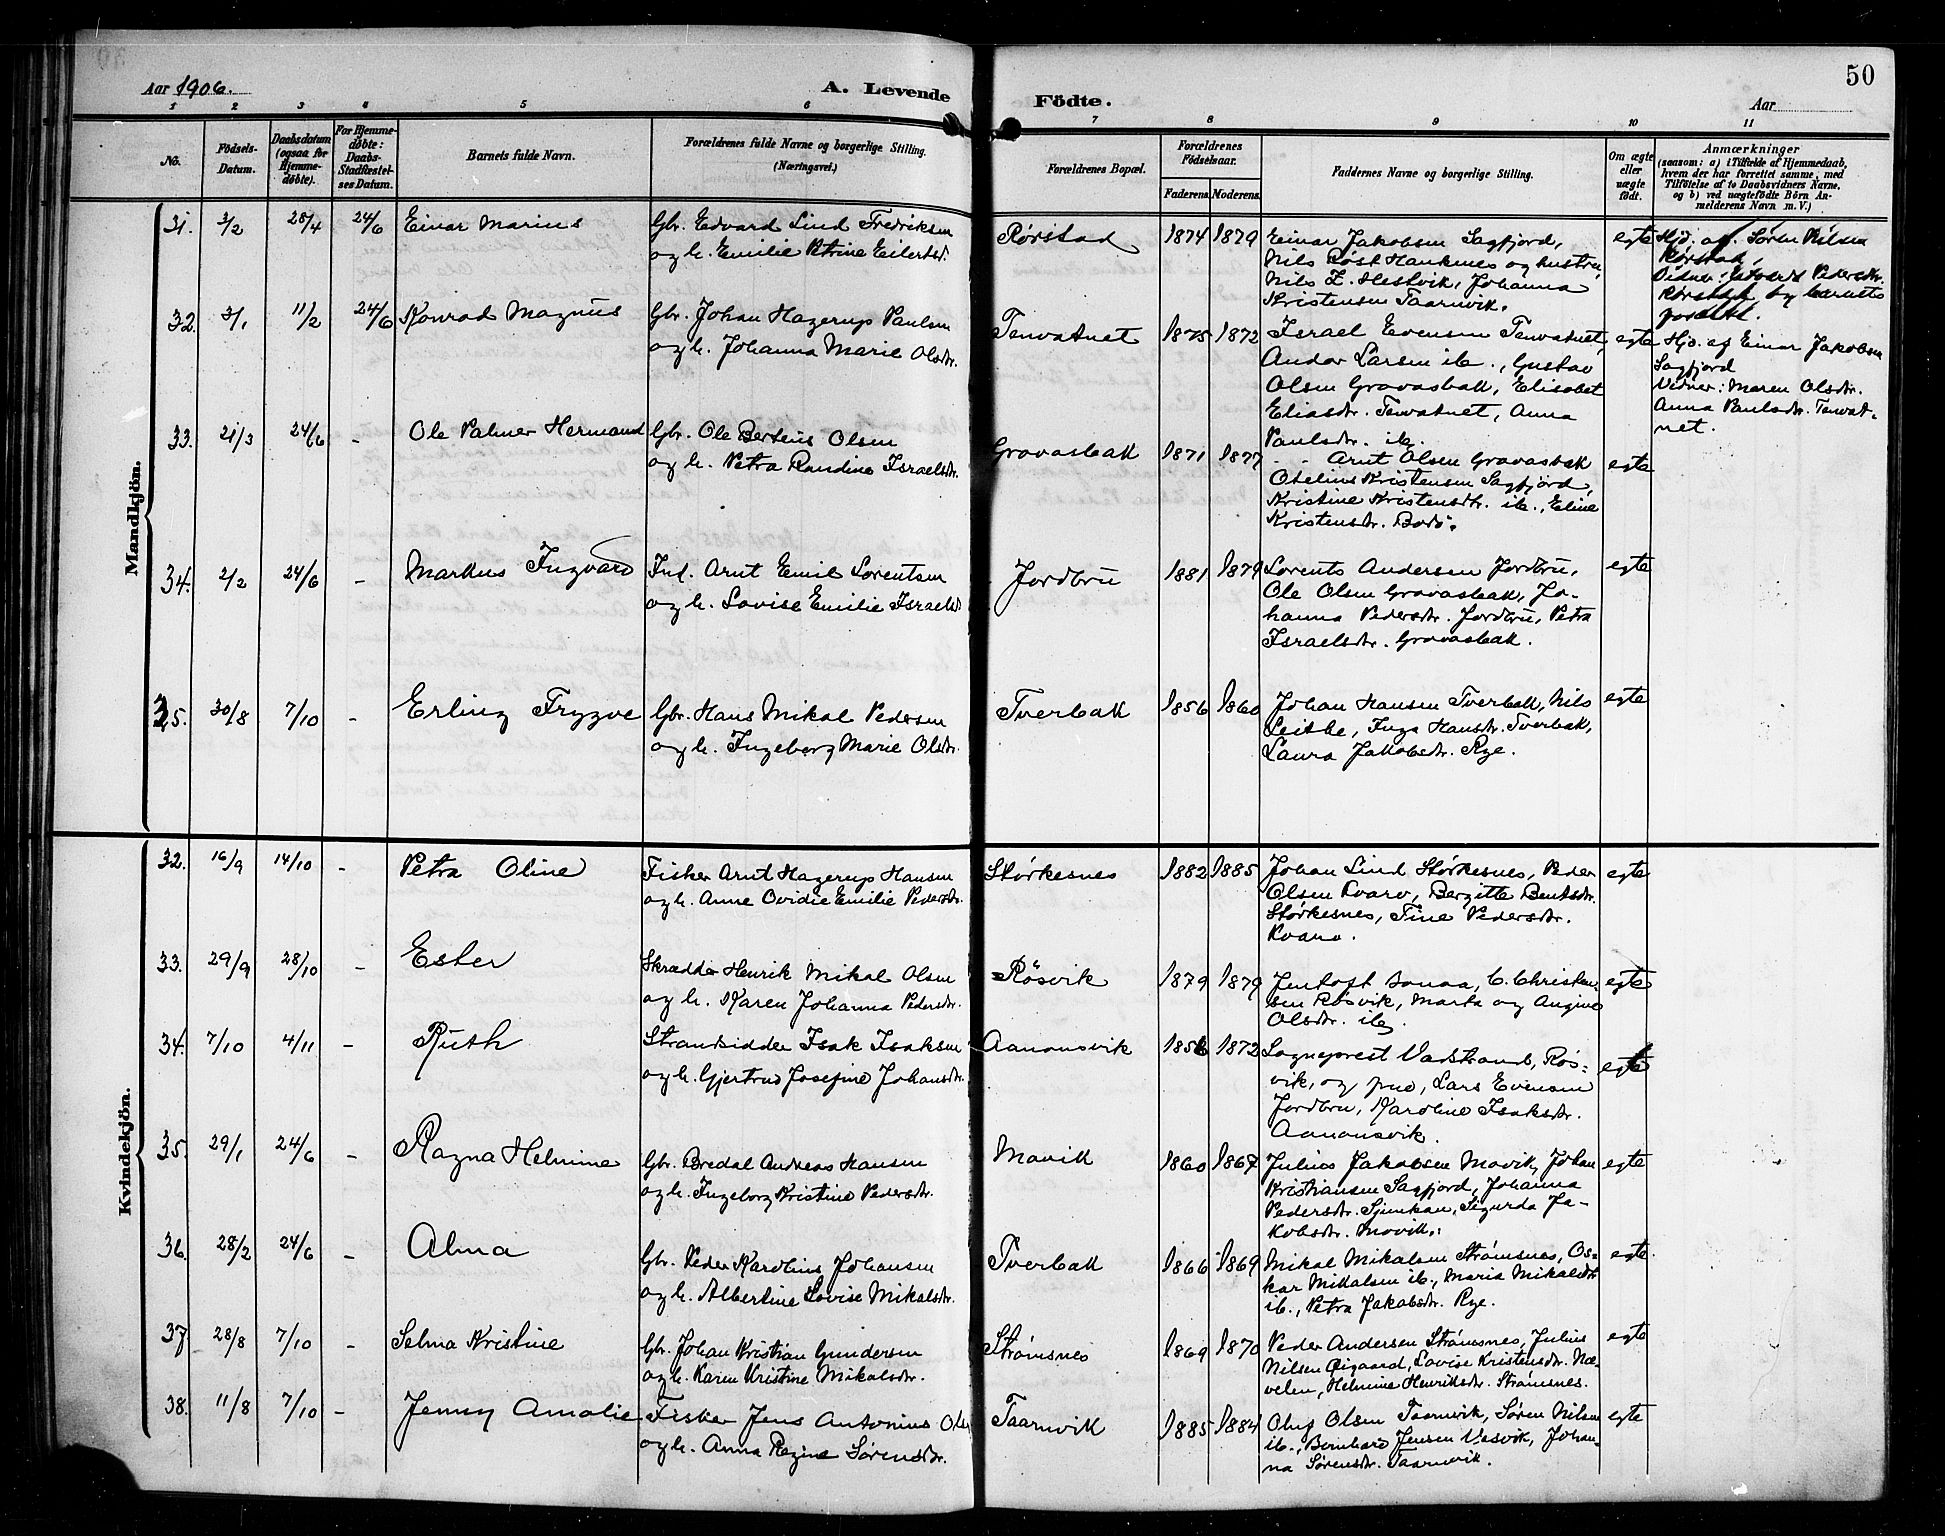 50
Aar 1906.
A. Levende Födte.
Aar
1 2 3 4 5 6 7 8 9 10 11
No.
Födsels-Datum.
Daabsdatum (ogsaa for Hjemme-døbte).
For Hjemme-døbte: Daabs-Stadfæstel-ses Datum.
Barnets fulde Navn.
Forældrenes fulde Navne og borgerlige Stilling.
(Næringsvei.)
Forældrenes Bopæl.
Forældrenes Födselsaar.
Faderens. Moderens.
Faddernes Navne og borgerlige Stilling.
Om ægte eller uægte født.
Anmærkninger
(saasom: a) i Tilfælde af Hjemmedaab,
hvem der har forrettet samme, med
Tilføielse af to Daabsvidners Navne,
og b) ved uægtefødte Børn An-
melderens Navn m. V.)
Mandkjön.
31. 3/2 25/4 24/6 Einar Marius
Gbr. Edvard Lind Fredriksen
og h. Emilie Petrine Eilertsd.
Rørstad 1874 1879
Einar Jakobsen Sagfjord,
Nils Røst Haukenes og hustru,
Nils Z. Hestvik, Johanna
Kristensen Taarnvik.
egte
Hjd. af. Søren Nilsen
Rørstad.
Rørstad, og barnets
32. 3/1 11/2 24/6 Konrad Magnus
Gbr. Johan Hagerup Paulsen
og h. Johanna Marie Olsdtr.
Tenvatnet 1875 1872
Israel Evensen Tenvatnet,
Andor Larsen ib., Gustav
Olsen Gravasbak, Elisabet
Eliasdtr. Tenvatnet, Anna
Paulsdtr. ib.
egte
Hjd. af Einar Jakobsen
Sagfjord
Vidner: Maren Olsdtr.
Anna Paulsdtr. Tenvat-
net.
33. 21/3 24/6 - Ole Palmer Hermand
Gbr. Ole Berteus Olsen
og h. Petra Randine Israelsdtr.
Gravasbak 1871 1877
Arnt Olsen Gravasbak
Otelius Kristensen Sagfjord,
Kristine Kristensdtr. ib., Eline
Kristensdtr. Bodø.
egte
34. 2/2 24/6 - Markus Ingvard
Ind. Arnt Emil Lorentsen
og h. Lovise Emilie Israelsd.
Jordbru 1881 1879
Lorents Andersen Jordbru,
Ole Olsen Gravasbak, Jo-
hanna Pedersdtr. Jordbru, Petra
Israelsdtr. Gravasbak.
egte
35. 30/8 7/10 - Erling Trygve
Gbr. Hans Mikal Pedersen
og h. Ingeborg Marie Olsdtr.
Tverbak 1856 1860
Johan Hansen Tverbak, Nils
Leitbe, Inga Hansdtr. Tverbak,
Laura Jakobsdtr. Rye.
egte
Kvindekjön.
32. 16/9 14/10 - Petra Oline
Fisker Arnt Hagerup Hansen
og h. Anne Ovidie Emilie Pedersdtr.
Størkesnes 1882 1885
Johan Lind Størkesnes, Peder
Olsen Kvarv, Bergitte Bentsdtr.
Størkesnes, Tine Pedersdtr.
Kvarv.
egte
33. 29/9 28/10 - Ester
Skrædder Henrik Mikal Olsen
og h. Karen Johanna Pedersdtr.
Røsvik 1879 1879
Jentoft Sonaa, C. Christen-
sen Røsvik, Marta og Angine
Olsdtr. ib.
egte
34. 7/10 4/11 - Ruth
Strandsidder Isak Isaksen
og h. Gjertrud Josefine Johansdtr.
Aanonsvik 1856 1872
Sogneprest Vadstrand, Røs-
vik, og frue, Lars Evensen
Jordbru, Karoline Isaksdtr.
Aanonsvik.
egte
35. 29/1 24/6 - Ragna Helmine
Gbr. Bredal Andreas Hansen
og h. Ingeborg Kristine Pedersdtr.
Movik 1860 1867
Julius Jakobsen Movik, Johan
Kristiansen Sagfjord, Johanna
Pedersdtr. Sjunkan, Sigurda Ja-
kobsdtr. Movik.
egte
36. 28/2 24/6 - Alma
Gbr. Peder Karolius Johansen
og h. Albertine Lovise Mikalsdtr.
Tverbak 1866 1869
Mikal Mikalsen Strømsnes, Os-
kar Mikalsen ib., Maria Mikalsdtr.
ib., Petra Jakobsdtr. Rye.
egte
37 28/8 7/10 - Selma Kristine
Gbr. Johan Kristian Gundersen
og h. Karen Kristine Mikalsdtr.
Strømsnes 1869 1870
Peder Andersen Strømsnes, Julius
Nilsen Øigaard, Lovise Kristensdtr. Næ-
velen, Helmine Henriksdtr. Strømsnes.
egte
38. 11/8 7/10 - Jenny Amalie
Fisker Jens Antonius Olsen
og h. Anna Regine Sørensdtr.
Taarnvik 1885 1884
Oluf Olsen Taarnvik, Søren Nilsen
ib., Bernhard Jensen Vasvik, Johan-
na Sørensdtr. Taarnvik.
egte